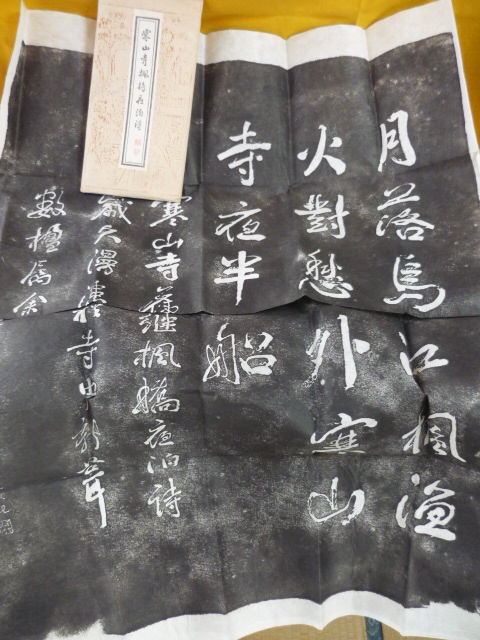 寒山寺楓橋夜泊詩
月落烏
江楓漁
火對愁
外寒山
寺夜半
船
寒山寺舊
繼楓橋夜泊詩
歲久漫漶
寺中新葺
數楹屬余